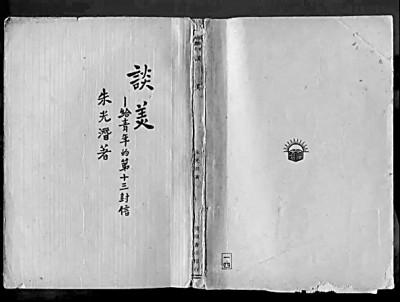 談美
—給青年的第十三封信
朱光潛著
談美